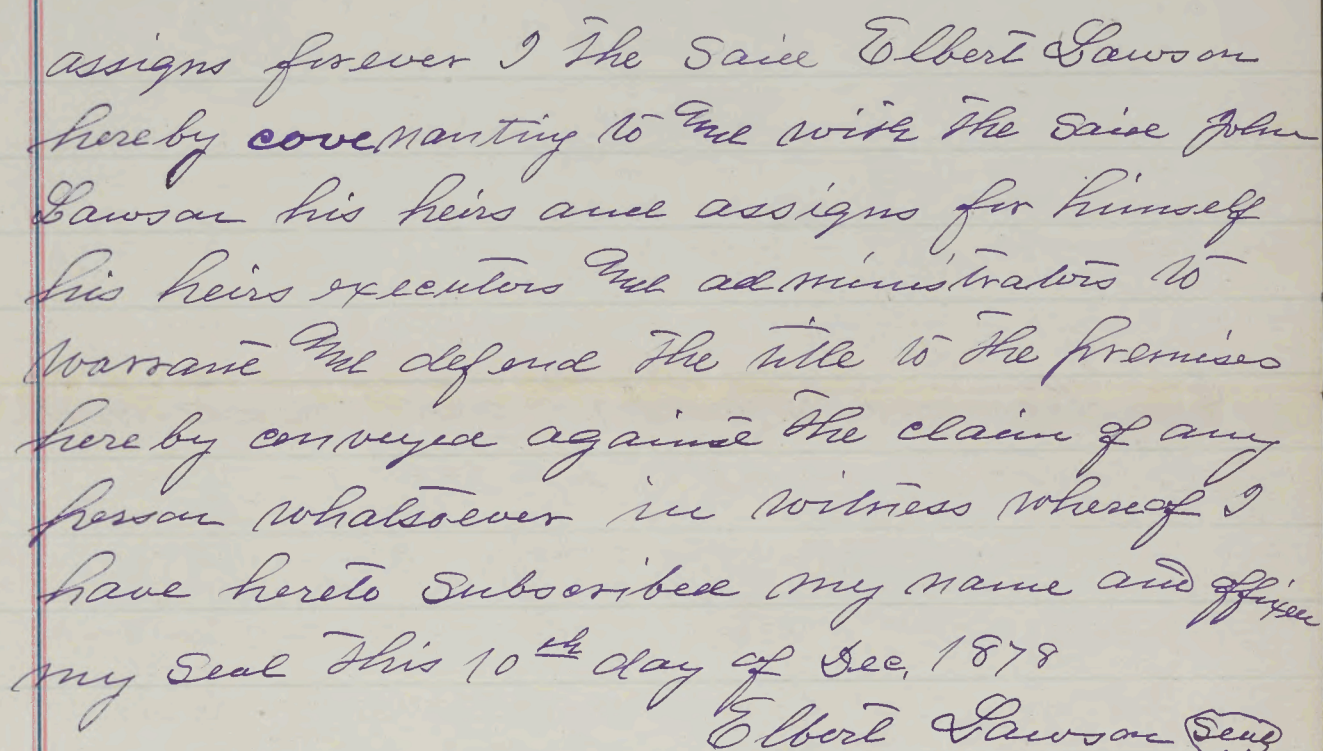 assigns forever I the said Elbert Lawson
hereby covenanting to and with the said John
Lawson his heirs and assigns for himself
his heirs executors and administrators to
warrant and defend the title to the premises
hereby conveyed against the claim of any
person whatsoever in witness whereof I
have hereto subscribed my name and affixed
my seal this 10th day of Dec, 1878
Elbert Lawson Seal